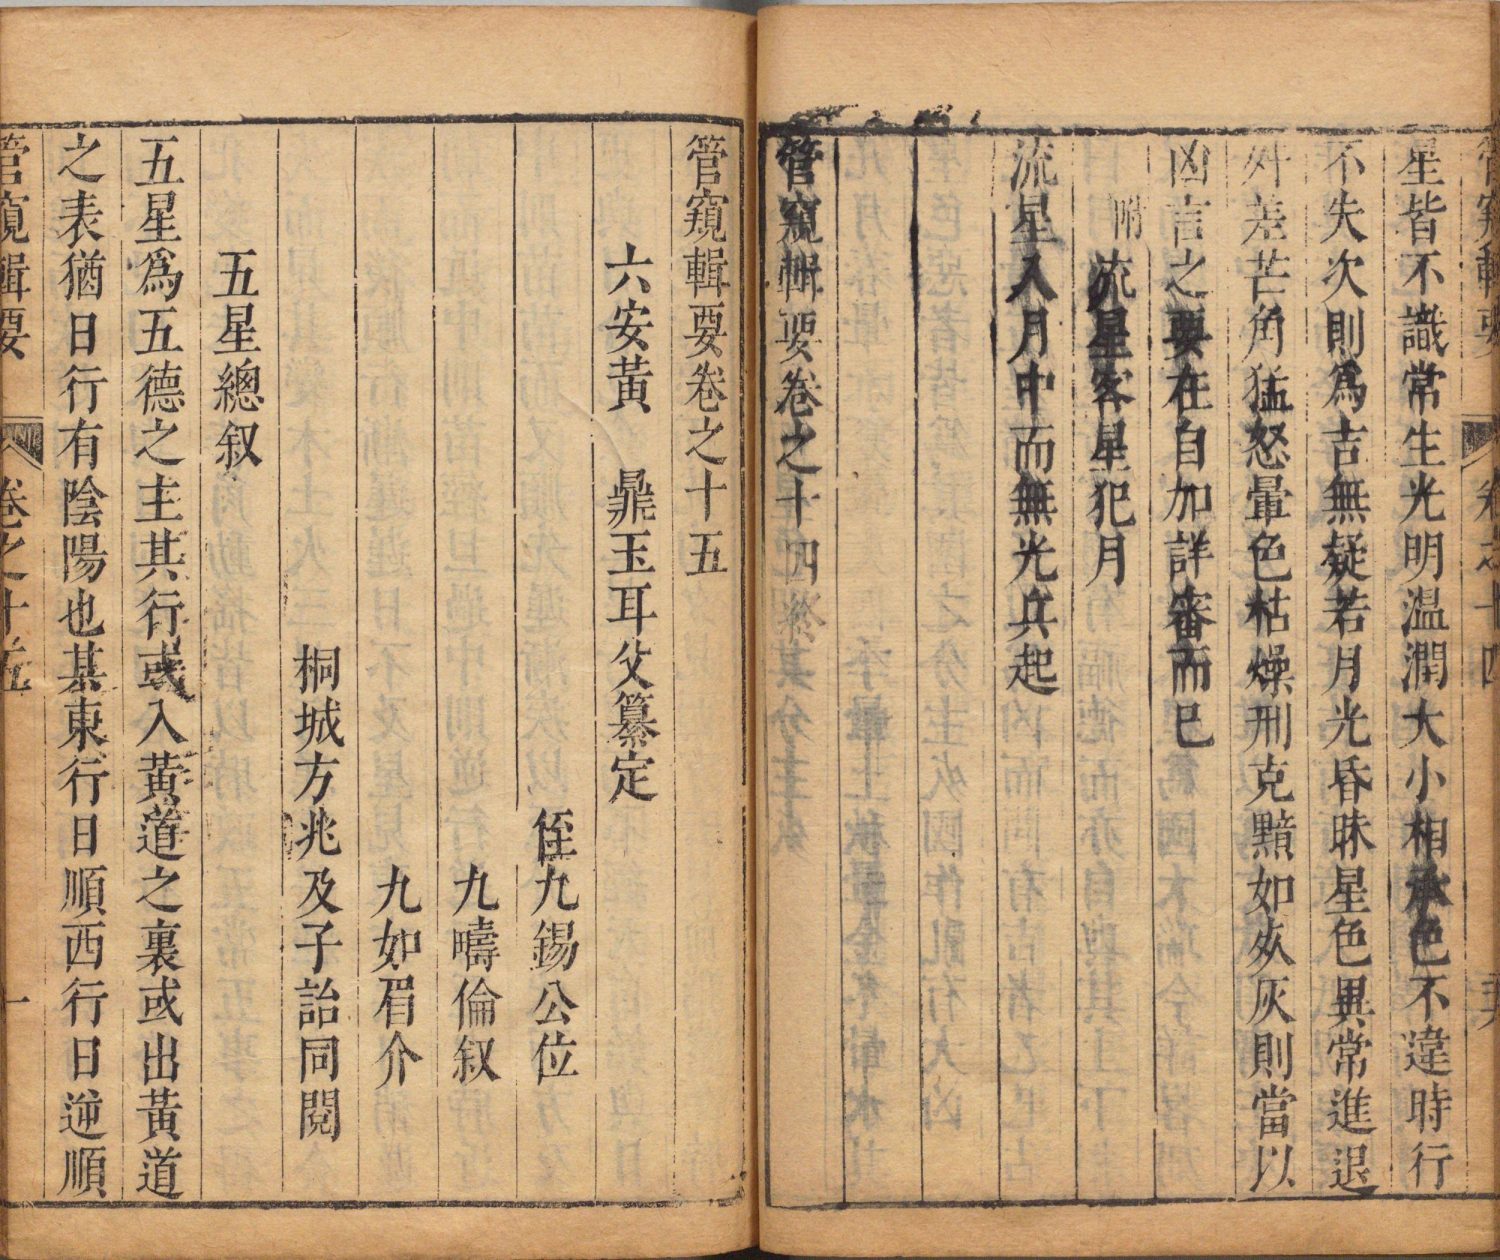 管窺輯要 卷之十四
星皆不識常生光明温潤大小相承色不違時行
不失次則爲吉無凝若月光昏昧星色異常進退
舛差芒角猛怒暈色枯燥刑克黯如炏灰則當以
凶言之要在自加詳審而已
附流星客星犯月
流星入月中而無光兵起
管窺輯要卷之十四終
管窺輯要卷之十五
六安黃 鼎玉耳父纂定
侄九錫公位
九疇倫叙
九如眉介
桐城方兆及子詒同閱
五星總叙
五星爲五德之主其行或入黃道之裏或出黃道
之表猶日行有陰陽也某東行日順西行日逆順
管窺輯要 卷之十五 一